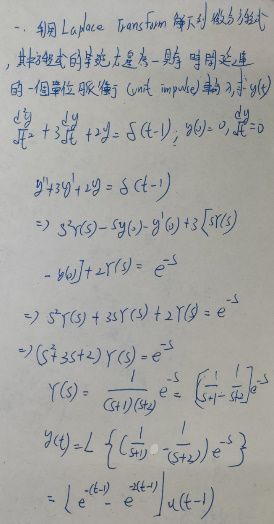 一. 利用 Laplace Transform 解下列微分方程式
，其方程式的等號右邊為一具有時間延遲
的一個單位脈衝 (unit impulse) 輸入, 求 y(t)
d²y/dt² + 3 dy/dt + 2y = δ(t-1) ; y(0) = 0, dy/dt = 0
y'' + 3y' + 2y = δ(t-1)
⇒ s²Y(s) - sy(0) - y'(0) + 3[sY(s)
- y(0)] + 2Y(s) = e^{-s}
⇒ s²Y(s) + 3sY(s) + 2Y(s) = e^{-s}
⇒ (s²+3s+2) Y(s) = e^{-s}
Y(s) = 1/((s+1)(s+2)) e^{-s} = [1/(s+1) - 1/(s+2)] e^{-s}
y(t) = L {(1/(s+1) - 1/(s+2)) e^{-s}}
= [e^{-(t-1)} - e^{-2(t-1)}] u(t-1)